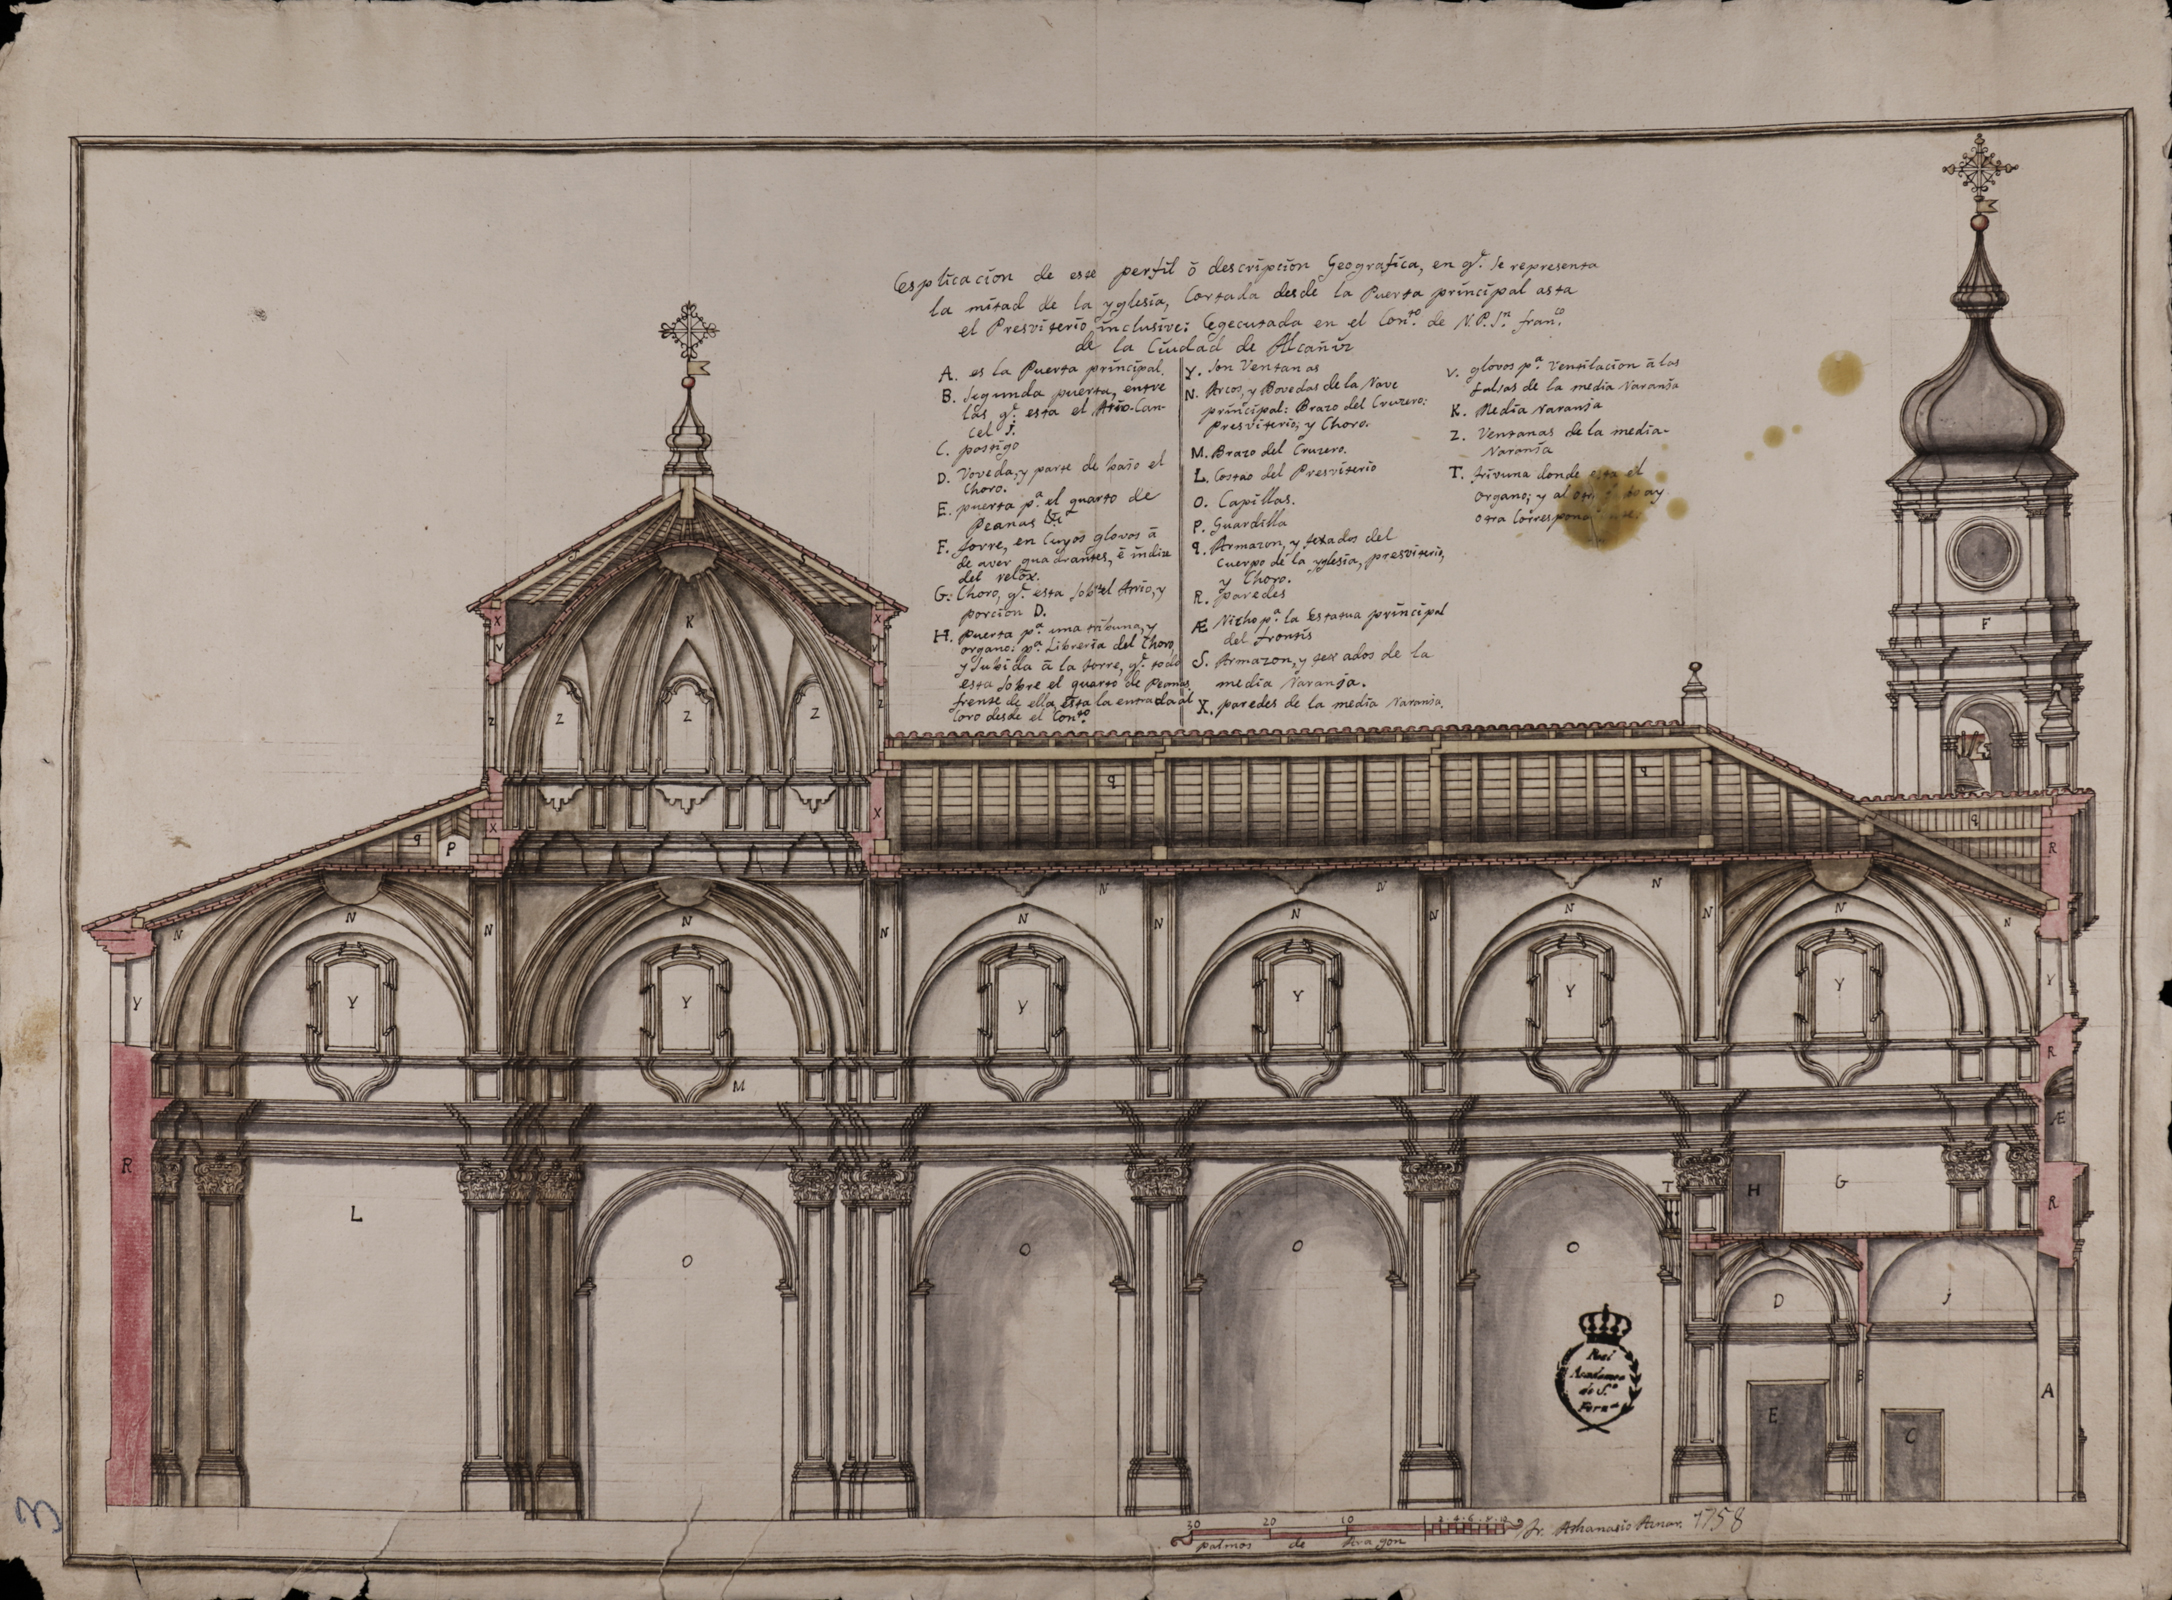 Esplicacion de este perfil ô descripcion Geografica, en qᵉ. se representa
la mitad de la yglesia, Cortada desde la Puerta principal asta
el Presviterio inclusive: Egecutada en el Conᵗᵒ. de N.P.Sⁿ. franᶜᵒ.
de la Ciudad de Alcañiz
A. es la Puerta principal.
B. segunda puerta, entre
las qᵉ. esta el Atrio-Can-
cel j.
C. postigo
D. Voveda, y parte de baso el
Choro.
E. puerta pᵃ. el quarto de
Peanas
F. torre, en Cuyos glovos â
de aver quadrantes, ê indize
del relox.
G. Choro, qᵉ. esta sobre el Atrio, y
porcion D.
H. puerta pᵃ. una tribuna, y
organo: pᵃ. Libreria del Choro,
y subida â la torre, qᵉ. todo
esta sobre el quarto de Peanas,
frente de ella, esta la entrada al
Coro desde el Conᵗᵒ.
Y. son Ventanas
N. Arcos, y Bovedas de la Nave
principal: Brazo del Cruzero:
presviterio, y Choro.
M. Brazo del Cruzero.
L. Costâo del Presviterio
O. Capillas.
P. Guardilla
q. Armazon, y texados del
Cuerpo de la yglesia, presviterio,
y Choro.
R. paredes
Æ Nicho pᵃ. la Estatua principal
del frontis
S. Armazon, y texados de la
media Naranja.
X. paredes de la media Naranja.
V. glovos pᵃ. Ventilacion â las
falsas de la media Naranja
K. Media Naranja
Z. Ventanas de la media-
Naranja
T. trivuna donde esta el
organo; y al ay
otra
F
S S
X K X
V V
Z Z Z Z Z
q q
X X
q P q
R
N N N N N N N N N N N N N N N
Y Y Y Y Y Y Y Y
M
R
Æ
R L T H G R
O O O O
D j
B
E C A
Real
Academia
de S.ⁿ
Fernᵈᵒ
30 20 10 1 2 4 6 8 10
palmos de Aragon
Fr. Athanasio Aznar. 1758
3